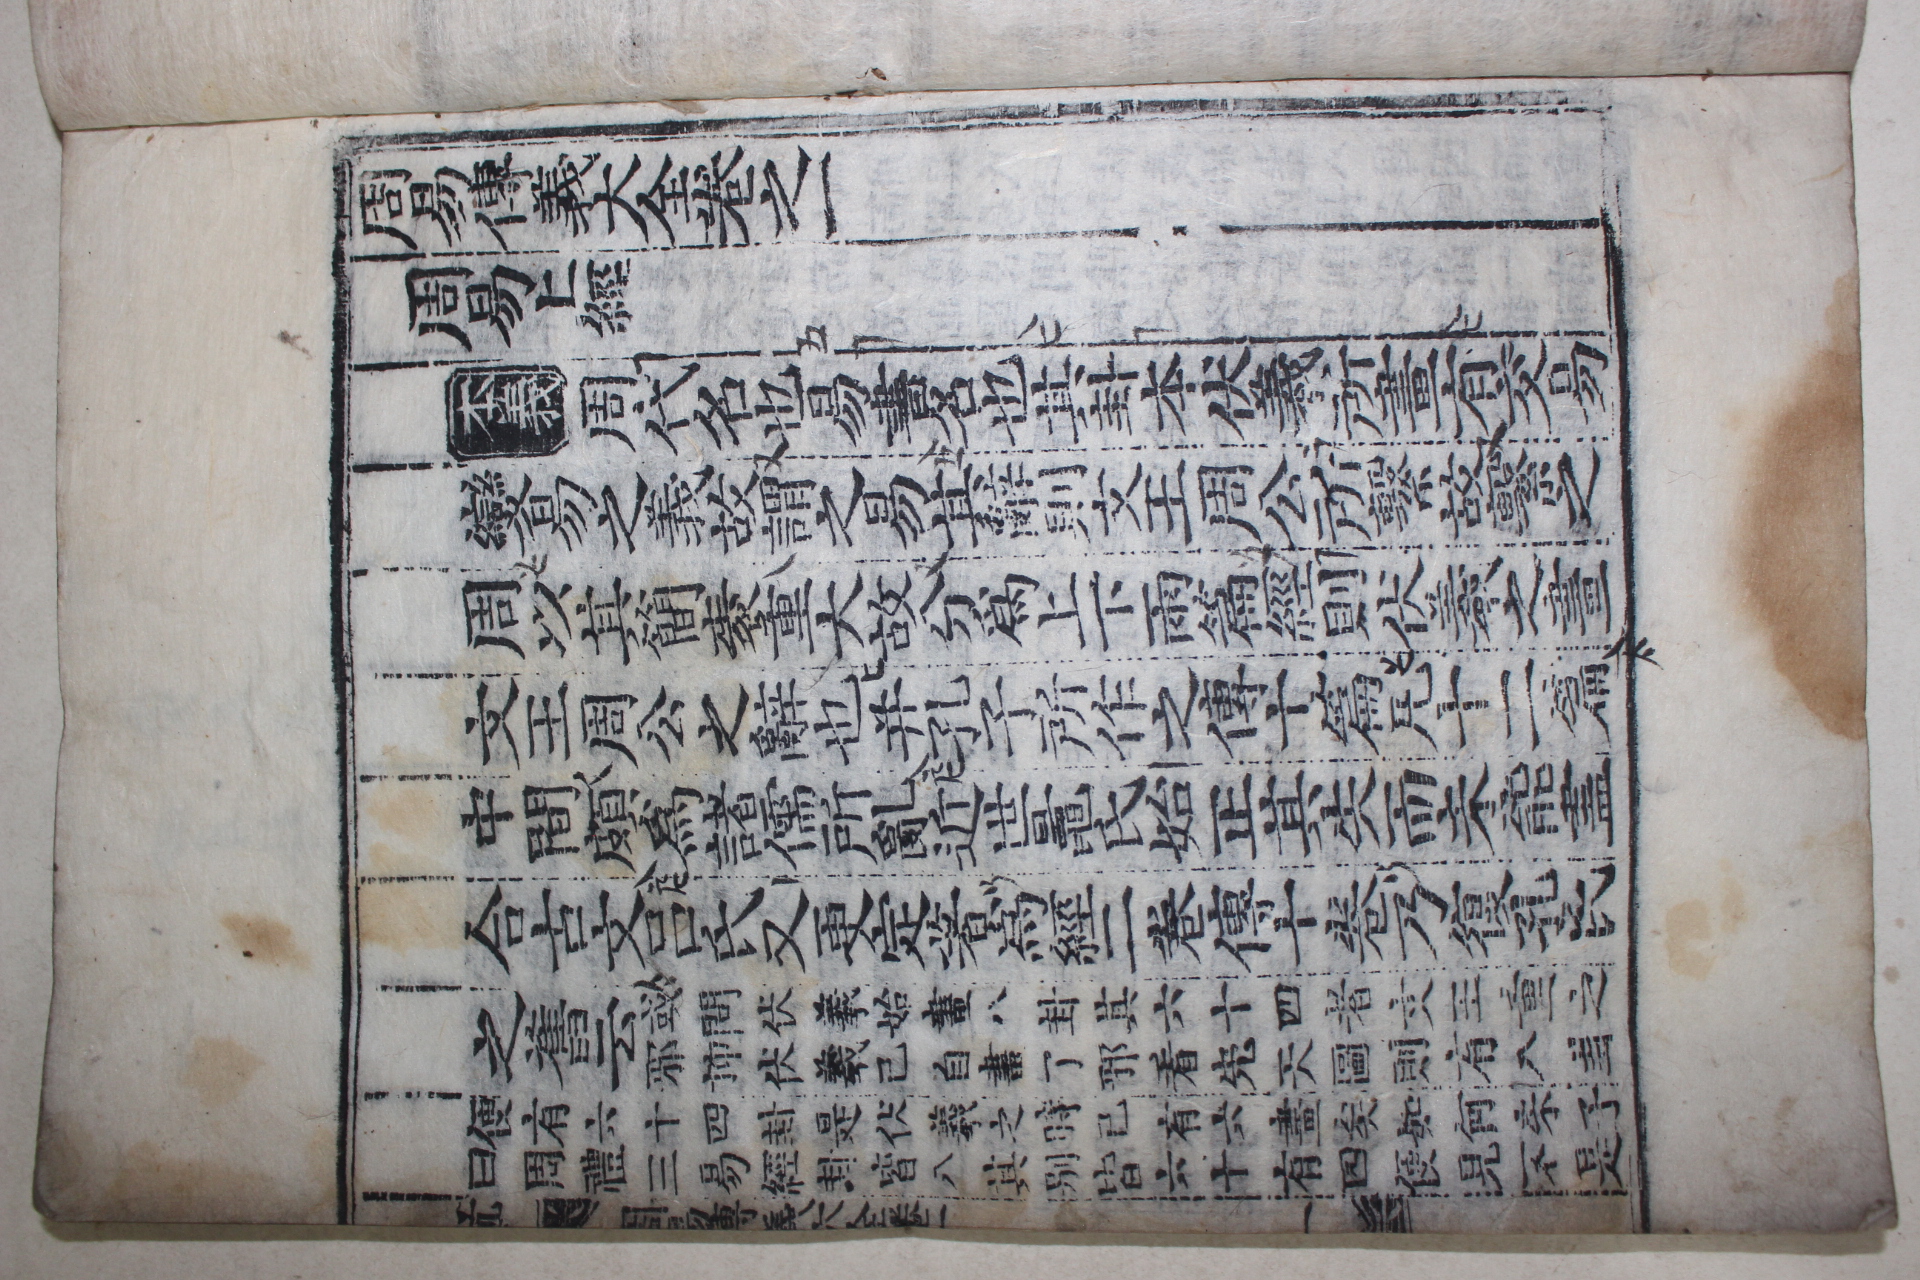 周易傳義大全卷之一
周易上經
本義
周代名也易書名也其卦本伏羲所畫有交易
變易之義故謂之易其辭則文王周公所繫故繫之
周以其簡袠重大故分爲上下兩篇經則伏羲之畫
文王周公之辭也并孔子所作之傳十篇凡十二篇
中間頗爲諸儒所亂近世晁氏始正其失而未能盡
合古文呂氏又更定著爲經二卷傳十卷乃復孔氏
之舊云
或問伏羲始畫八卦其六十四者文王重之
邪抑伏羲已自畫了邪看先天圖則有八卦
便有六十四卦是伏羲之時已有六畫矣如何朱子
曰周禮三易經卦皆八其別皆六十有四便見不是
周易傳義大全卷一
一